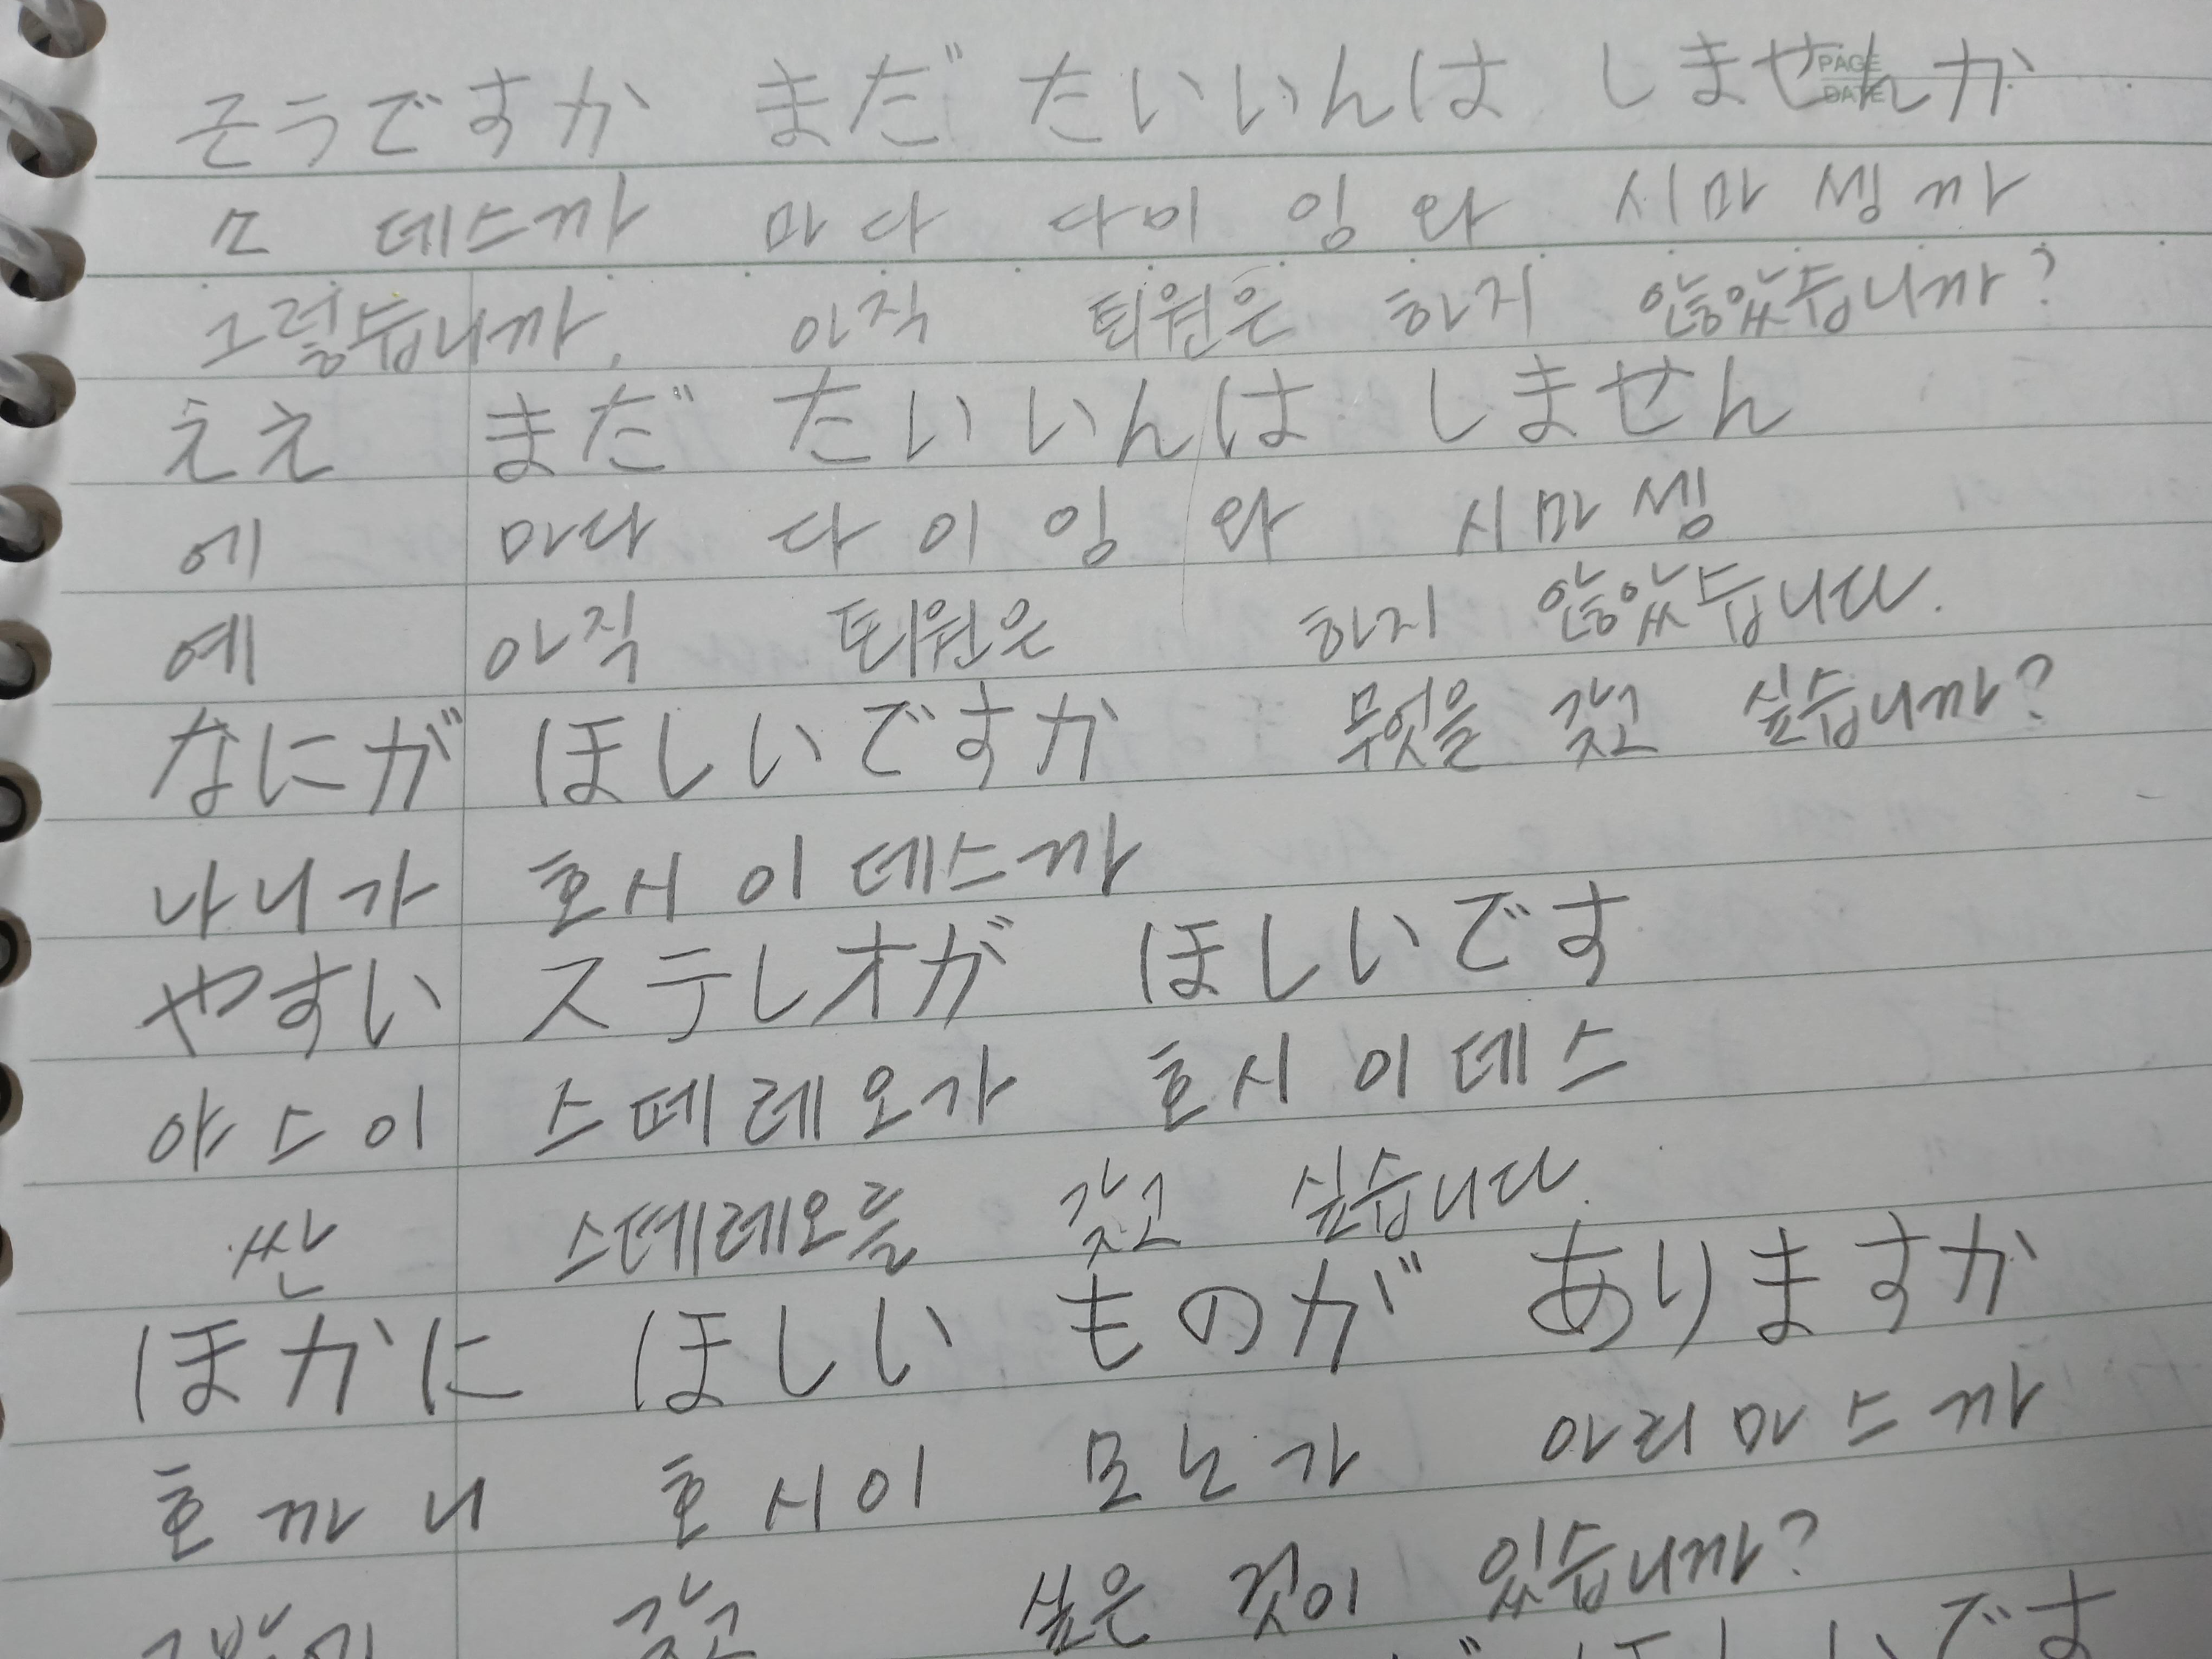 そうですか まだ たいいんは しませんか
PAGE
DATE
소 데스까 마다 다이 잉 와 시마 셍 까
그렇습니까, 아직 퇴원은 하지 않았습니까?
ええ まだ たいいんは しません
에 마다 다 이 잉 와 시마 셍
예 아직 퇴원은 하지 않았습니다.
なにが ほしいですか 무엇을 갖고 싶습니까?
나니가 호시 이 데스까
やすい ステレオが ほしいです
야스이 스떼레오가 호시 이 데스
싼 스떼레오를 갖고 싶습니다.
ほかに ほしい ものが ありますか
호까니 호시이 모노가 아리마스까
갖고 싶은 것이 있습니까?
です